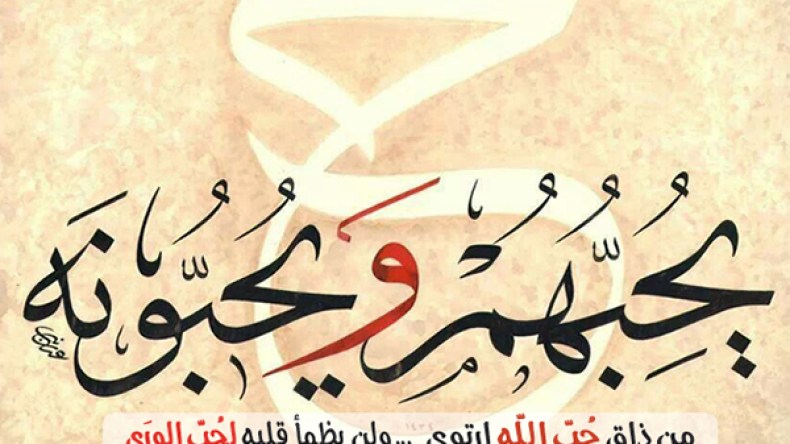 يُحِبُّهُمْ وَيُحِبُّونَهُ
من ذاق حُبّ اللّه ارتوى ...ولن يظمأ قلبه لِحُبّ الورَى